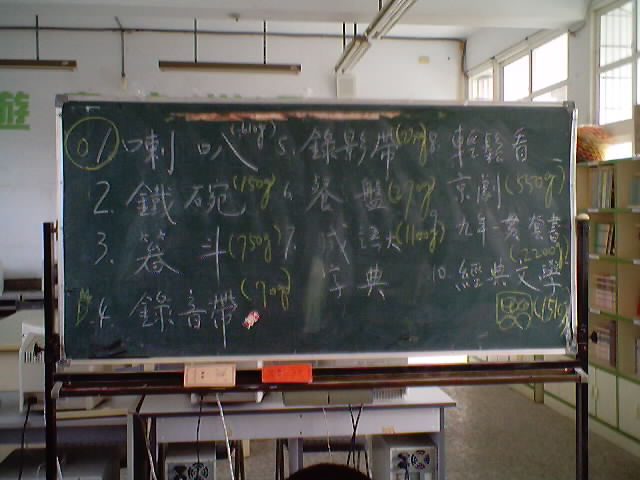 游
1. 喇叭
2. 鐵碗(150g)
3. 畚斗(750g)
4. 錄音帶(70g)
5. 錄影帶
6. 餐盤(270g)
7. 成語大(1100g)
字典
8. 輕鬆看
京劇(550g)
9. 九年一貫套書
(2200g)
10. 經典文學